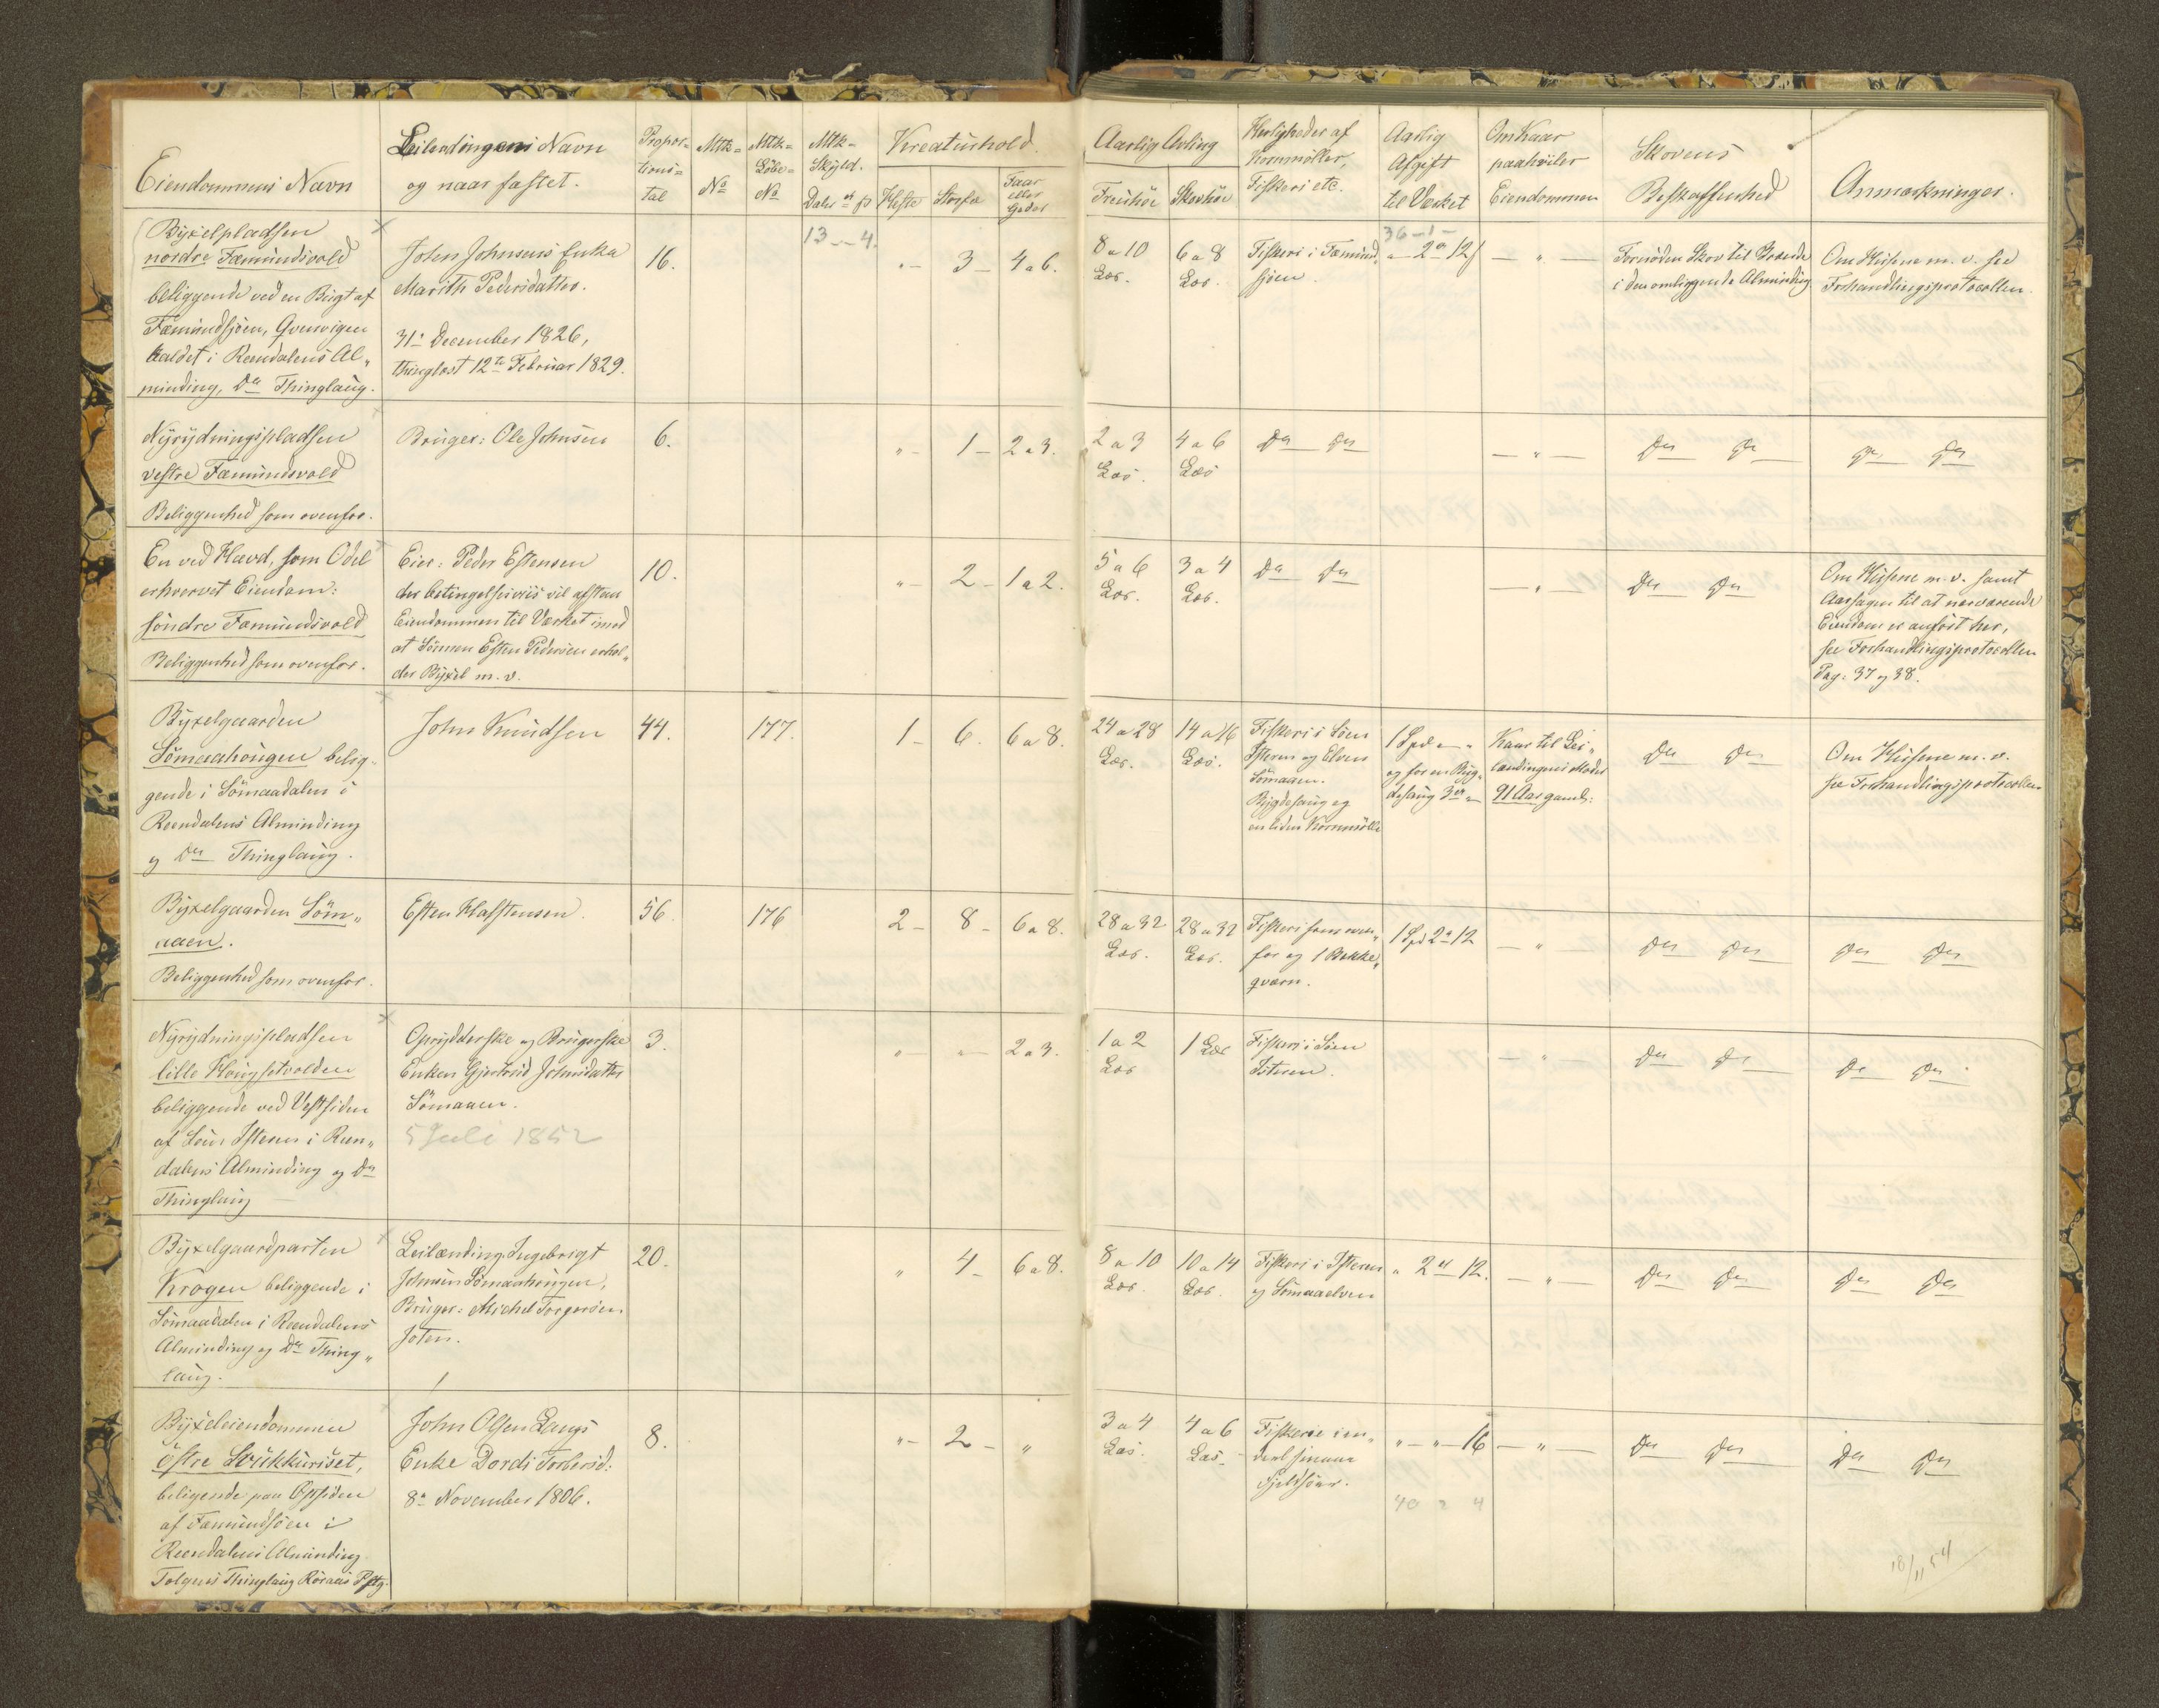 Eiendommens Navn
Leilendingens Navn
og naar fæstet.
Propor=
tions=
tal
Mtk=
No
Mtk=
Löbe=
No
Mtk=
Skyld.
Daler ort ß
Kreaturhold.
Heste
Storfæ
Faar
eller
Geder
Aarlig Avling
Freuhöe
Skovhöe
Herligheder af
Kornmöller,
Fiskeri etc.
Aarlig
Afgift
til Værket
Om Kaar
paahviler
Eiendommen
Skovens
Beskaffenhed
Anmærkninger.
Byxelpladsen
nordre Fæmundsvold
beliggende ved en Bugt af
Fæmundsjöen, Qvenvigen
kaldet i Reendalens Al„
minding, Do Thinglaug.
John Johnsens Enke
Marith Pedersdatter.
31. December 1826,
thinglæst 12te Februar 1829.
16.
13 - - 4.
" - 3 - 4 a 6.
8 a 10
Læs.
6 a 8
Læs.
Fiskeri i Fæmund„
sjöen.
36 - 1 -
" - 2 ort 12 ß
— " —
Fornöden Skov til Brænde
i den omliggende Alminding
Om Husene m. v. see
Forhandlingsprotocollen.
Nyrydningspladsen
vestre Fæmundsvold
Beliggenhed som ovenfor.
Bruger: Ole Johnsen
6.
" - 1 - 2 a 3.
2 a 3
Læs.
4 a 6
Læs
Do Do
— " —
Do Do
Do Do
En ved Hævd, som Odel
erhvervet Eiendom:
söndre Fæmundsvold
Beliggenhed som ovenfor.
Eier: Peder Estensen
der betingelsesviis vil afstaa
Eiendommen til Værket imod
at Sönnen Esten Pedersen erhol„
der Byxel m. v.
10.
" - 2 - 1 a 2.
5 a 6
Læs.
3 a 4
Læs.
Do Do
— " —
Do Do
Om Husene m. v. samt
Aarsagen til at nærværende
Eiendom er anfört her,
see Forhandlingsprotocollen
Pag: 37 og 38.
Byxelgaarden
Sömaahougen belig„
gende i Sömaadalen i
Reendalens Alminding
og Do Thinglaug.
John Knudsen
44.
177.
1 - 6. 6 a 8.
24 a 28
Læs.
14 a 16
Læs.
Fiskeri i Söen
Isteren og Elven
Sömaaen.
Bygdesaug og
en liden Kornmölle
1 Spd " - "
og for en Byg„
desaug 3 ort "
Kaar til Lei„
lændingens Moder
91 Aar gaml:
Do Do
Om Husene m. v.
see Forhandlingsprotocollen
Byxelgaarden Söm„
aaen.
Beliggenhed som ovenfor.
Esten Halstensen.
56.
176
2 - 8 - 6 a 8.
28 a 32
Læs.
28 a 32
Læs.
Fiskeri som oven„
for og 1 Bække„
qværn.
1 Spd 2 ort 12
— "
Do Do
Do Do
Nyrydningspladsen
lille Hougsetvolden
beliggende ved Vestsiden
af Söen Isteren i Reen„
dalens Alminding og Do
Thinglaug
Oprydderske og Brugerske
Enken Gjertrud Johnsdatter
Sömaaen.
5 Juli 1852
3.
" " - 2 a 3.
1 a 2
Læs
1 Læs
Fiskeri i Söen
Isteren.
— " —
Do Do
Do Do.
Byxelgaardparten
Krogen beliggende i
Sömaadalen i Reendalens
Alminding og Do Thing„
laug.
Leilænding Ingebrigt
Johnsen Sömaahougen,
Bruger: Michel Torgersen
Joten.
20.
" 4 - 6 a 8.
8 a 10
Læs.
10 a 14
Læs.
Fiskeri i Isteren
og Sömaaelven
" 2 ort 12.
— " —
Do Do
Do Do
Byxeleiendommen
östre Svukkuriset,
beligende paa Östsiden
af Fæmundsöen i
Reendalens Alminding
Tolgens Thinglaug Röraas Pstg.
John Olsen Langs
Enke Dordi Torbersd:
8de November 1806.
8.
" - 2 - "
3 a 4
Læs.
4 a 6
Læs.
Fiskerie i en„
deel smaae
Fjeldsöer.
" - " - 16
— " —
Do Do
Do Do
40 2 4
18/11 54